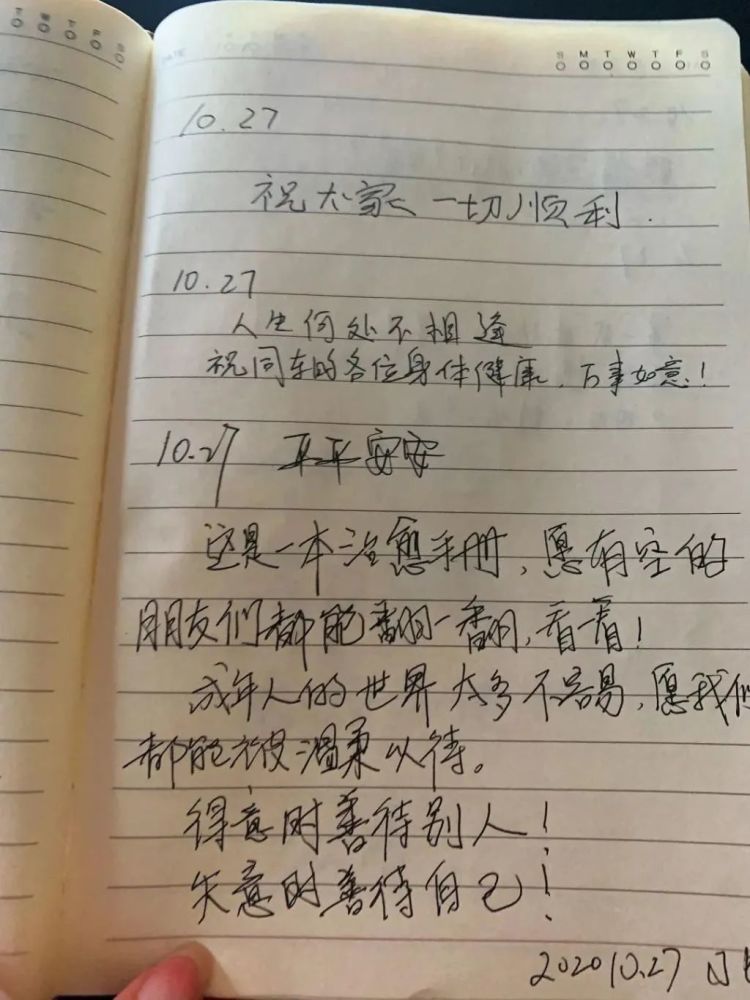 T W T F S
S M T W T F S
DATE
10.27
祝大家一切顺利.
10.27
人生何处不相逢
祝同车的各位身体健康、万事如意!
10.27 平平安安
这是一本治愈手册,愿有空的
朋友们都能翻一翻,看一看!
成年人的世界太多不容易,愿我们
都能被温柔以待。
得意时善待别人!
失意时善待自己!
2020 10.27